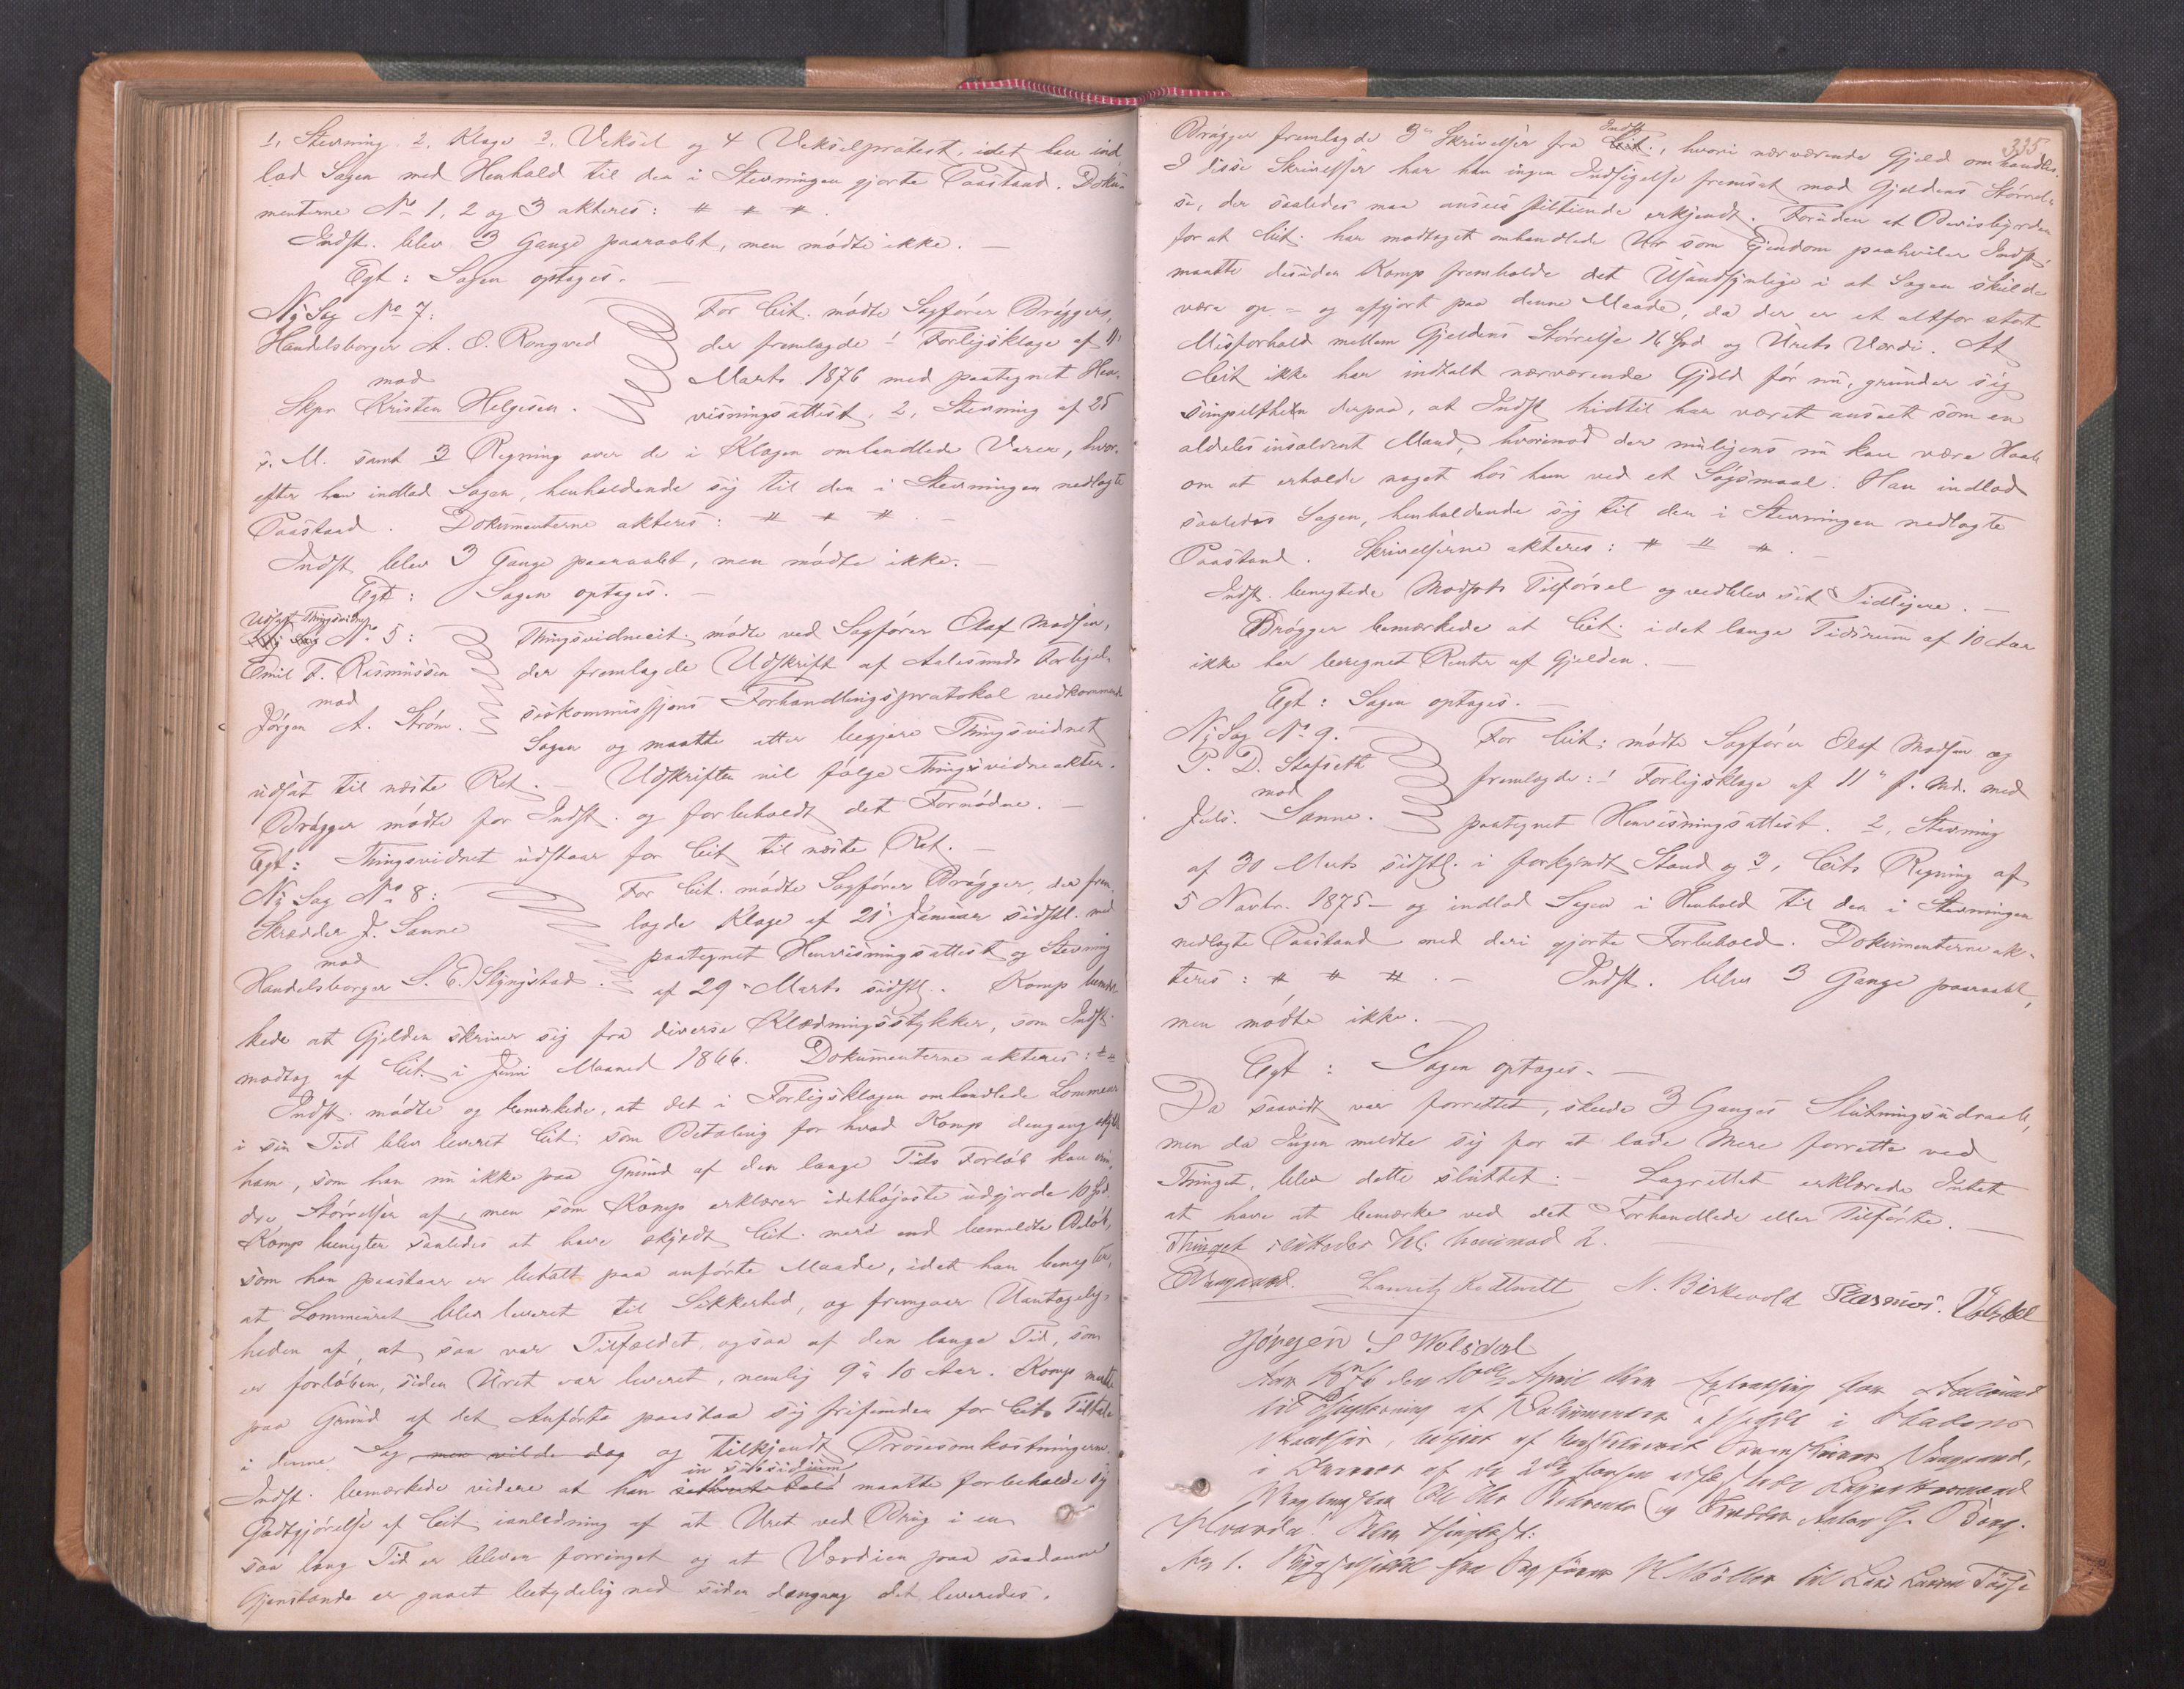 1, Stevning. 2, Klage 3, Veksel og 4 Vekselprotest, idet han ind-
lod Sagen med Henhold til den i Stevningen gjorte Paastand. Doku-
menterne No 1, 2 og 3 akteres: # # #.
Indst. blev 3 Gange paaraabt, men mødte ikke. —
Egt: Sagen optages. —
Ny Sag No 7:
Handelsborger A. O. Rongved
mod
Skpr Kristen Helgesen.
For Cit. mødte Sagfører Brøgger,
der fremlagde 1 Forligsklage af 11
Marts 1876 med paategnet Hen-
visningsattest, 2, Stevning af 25
s. M. samt 3 Regning over de i Klagen omhandlede Varer, hvor-
efter han indlod Sagen, henholdende sig til den i Stevningen nedlagte
Paastand. Dokumenterne akteres: # # #. —
Indst blev 3 Gange paaraabt, men mødte ikke. —
Egt: Sagen optages. —
Udsat Thingsvidne
Ny Sag No 5:
Emil F. Rasmussen
mod
Jørgen A. Strøm.
Thingsvidnecit. mødte ved Sagfører Olaf Madsen,
der fremlagde Udskrift af Aalesunds Forligel-
seskommissjons Forhandlingsprotokol vedkommende
Sagen og maatte atter begjære Thingsvidnet
udsat til næste Ret. — Udskriften vil følge Thingsvidneakten.
Brøgger mødte for Indst. og forbeholdt det Fornødne. —
Egt: Thingsvidnet udstaar for Cit til næste Ret. —
Ny Sag No 8:
Skrædder J. Sanne
mod
Handelsborger S. E. Slyngstad.
For Cit. mødte Sagfører Brøgger, der frem-
lagde Klage af 21 Januar sidstl. med
paategnet Henvisningsattest og Stevning
af 29 Marts sidstl. Komp bemær-
kede at Gjelden skriver sig fra diverse Klædningsstykker, som Indst.
modtog af Cit. i Juni Maaned 1866. Dokumenterne akteres: # #
Indst. mødte og bemærkede, at det i Forligsklagen omhandlede Lommeur
i sin Tid blev leveret Cit. som Betaling for hvad Komp dengang skyldte
ham, som han nu ikke paa Grund af den lange Tids Forløb kan erin-
dre Størrelsen af, men som Komp erklærer idethøjeste udgjorde 10 Spd.
Komp benegter saaledes at have skyldt Cit. mere end bemeldte Beløb,
som han paastaar er betalt paa anførte Maade, idet han benegter,
at Lommeuret blev leveret til Sikkerhed, og fremgaar Uantagelig-
heden af, at saa var Tilfældet, ogsaa af den lange Tid, som
er forløben, siden Uret var leveret, nemlig 9 á 10 Aar. Komp maatte
paa Grund af det Anførte paastaa sig frifunden for Cits Tiltale
i denne Sag men vilde dog og tilkjendt Prosesomkostningerne.
in subsidium
Indst. bemærkede videre at han maatte forbeholde sig
Godtgjørelse af Cit. ianledning af at Uret ved Brug i en
saa lang Tid er bleven forringet og at Værdien paa saadanne
Gjenstande er gaaet betydelig ned siden dengang det leveredes.
335
Indst
Brøgger fremlagde 3 Skrivelser fra Cit., hvori nærværende Gjeld omhandles.
I disse Skrivelser har han ingen Indsigelse fremsat mod Gjeldens Størrel-
se, der saaledes maa ansees stiltiende erkjendt. Foruden at Bevisbyrden
for at Cit. har modtaget omhandlede Ur som Eiendom paahviler Indst,
maatte desuden Komp fremholde det Usandsynlige i at Sagen skulde
være op- og afgjort paa denne Maade, da der er et altfor stort
Misforhold mellem Gjeldens Størrelse 16 Spd og Urets Værdi. At
Cit ikke har indtalt nærværende Gjeld før nu, grunder sig
simpelthen derpaa, at Indst hidtil har været anseet som en
aldeles insolvent Mand, hvorimod der muligens nu kan være Haab
om at erholde noget hos ham ved et Søgsmaal. Han indlod
saaledes Sagen, henholdende sig til den i Stevningen nedlagte
Paastand. Skrivelserne akteres: # # #. —
Indst. benegtede Modpts Tilførsel og vedblev sit Tidligere. —
Brøgger bemærkede at Cit. i det lange Tidsrum af 10 Aar
ikke har beregnet Renter af Gjelden. —
Egt: Sagen optages. —
Ny Sag No 9.
P. D. Stafseth
mod
Juls. Sanne.
For Cit. mødte Sagfører Olaf Madsen og
fremlagde: 1 Forligsklage af 11 f. Md. med
paategnet Henvisningsattest. 2, Stevning
af 30 Marts sidstl. i forkyndt Stand og 3, Cits Regning af
5 Novbr. 1875 — og indlod Sagen i Henhold til den i Stevningen
nedlagte Paastand med deri gjorte Forbehold. Dokumenterne ak-
teres: # # #. — Indst. blev 3 Gange paaraabt,
men mødte ikke. —
Egt: Sagen optages. —
Da saavidt var forrettet, skede 3 Ganges Slutningsudraab,
men da Ingen meldte sig for at lade Mere forrette ved
Thinget, blev dette sluttet: — Lagrettet erklærede Intet
at have at bemærke ved det Forhandlede eller Tilførte. —
Thinget sluttedes Kl.
Lauritz N. Birkevold Rasmus. Volsdal
Jørgen S Wolsdal
Aar 1876 den April blev Extrathing for Aalesund
til Thinglæsning af Dokumenter afholdt i Stadens